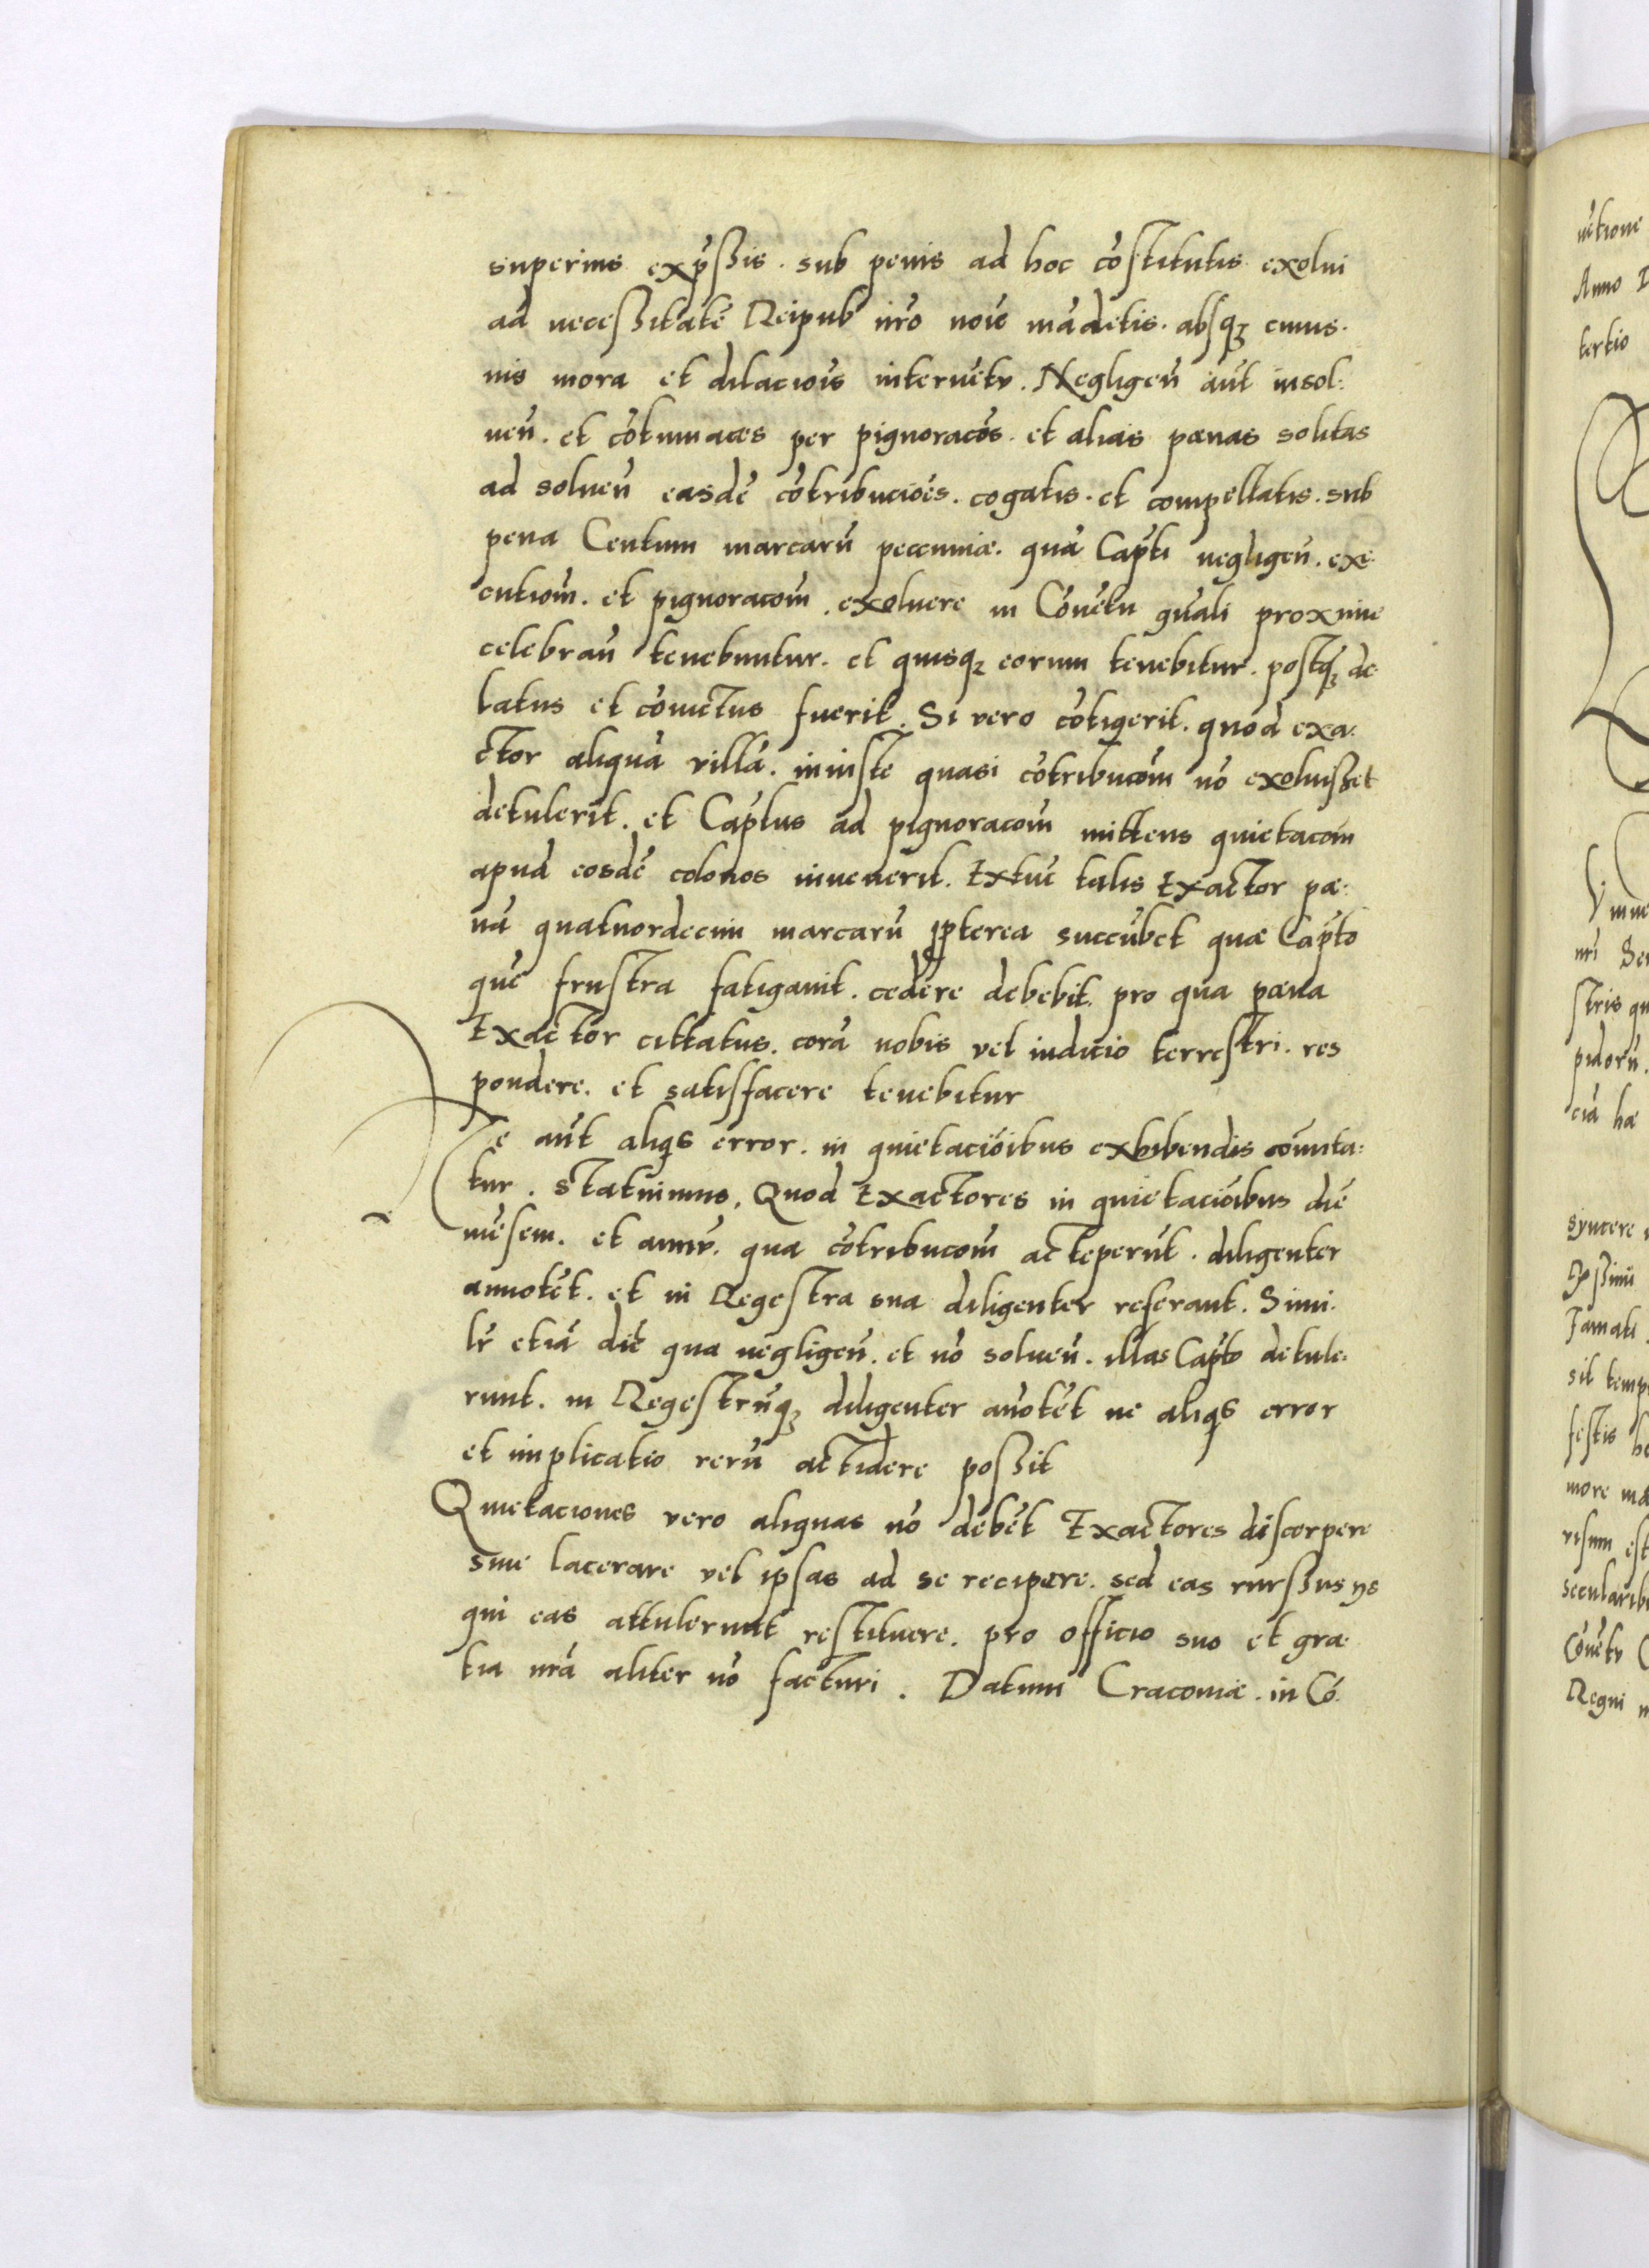 superius exp̃ßis. sub penis ad hoc cõstitutis exolui
ad neceßitatẽ Reipub nr̃o noiẽ mãdetis. absq̃ cuius.
uis mora et dilaciois interuẽtu. Negligeñ aũt insol:
ueñ. et cõtumaces per pignoracõs. et alias pœnas solitas
ad solueñ easdẽ cõtribucioẽs. cogatis. et compellatis. sub
pena Centum marcarũ peccuniæ. quã Capti negligeñ. exe
cutiom̃. et pignoracom̃. exoluere in Cõuẽtu gñali proxime
celebrañ tenebuntur. et quisq̃ eorum tenebitur. postq̃ de
latus et cõuictus fuerit. Si vero cõtigerit. quod exa:
ctor aliquã villã. iniuste quasi cõtribucom̃ nõ exoluißet
detulerit. et Captus ad pignoracom̃ mittens quietacom̃
apud eosdẽ colonos inuenerit. Extũc talis Exactor pæ:
nã quatuordecim marcarũ ꝓpterea succũbet quæ Capto
quẽ frustra fatigauit. cedere debebit. pro qua pœna
Exactor cittatus. corã nobis vel iudicio terrestri. res
pondere. et satisfacere tenebitur
Ne aũt aliqs error. in quietaciõibus exhibendis cõmitta:
tur. Statuimus. Quod Exactores in quietaciõibus diẽ
mẽsem. et annũ. qua cõtribucom̃ acceperũt. diligenter
annotẽt. et in Regestra sua diligenter referant. Simi.
lr̃ etiã diẽ qua negligeñ. et nõ solueñ. illas Capto detule:
runt. in Regestrũq̃ diligenter añotẽt ne aliqs error
et implicatio rerũ accidere poßit
Quietaciones vero aliquas nõ debẽt Exactores discerpere
siue lacerare vel ipsas ad se recipere. sed eas rurßus ijs
qui eas attulerunt restituere. pro officio suo et gra
tia nr̃a aliter nõ facturi. Datum Cracouiæ. in Cõ.
uẽtione
Anno D
tertio
nr̃i Ser
stris qu
pidorũ.
ciã hæ
syncere
Famati
sit temp
festis ho
more ma
visum est
secularib
Cõuẽtu C
Regni